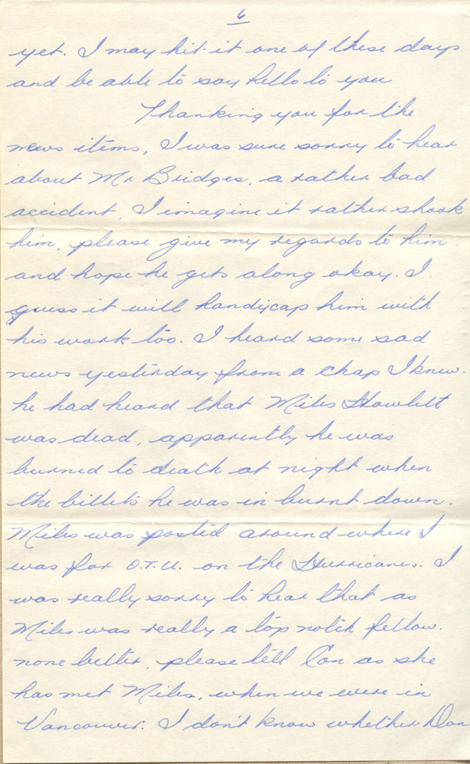 6
yet. I may hit it one of these days
and be able to say hello to you
Thanking you for the
news items, I was sure sorry to hear
about Mr Bridges, a rather bad
accident, I imagine it rather shook
him, please give my regards to him
and hope he gets along okay. I
guess it will handicap him with
his work too. I heard some sad
news yesterday from a chap I knew.
he had heard that Miles Howlett
was dead, apparently he was
burned to death at night when
the billets he was in burnt down.
Miles was posted around where I
was for O.T.U. on the Hurricanes. I
was really sorry to hear that as
Miles was really a top notch fellow.
none better, please tell Con as she
has met Miles, when we were in
Vancouver. I don't know whether Don